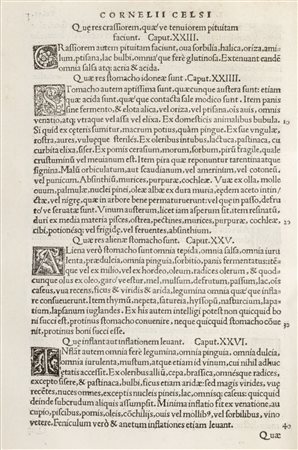 CORNELII CELSI
Quę res crassiorem, quæ've tenuiorem pituitam
faciunt. Caput. XXIII.
CRassiorem autem pituitam faciunt, oua sorbilia, halica, oriza, ami
lum, ptisana, lac, bulbi, omnia'que ferè glutinosa. Extenuant eandē
omnia salsa atq; acria & acida.
Quæ res stomacho idoneæ sunt. Caput. XXIIII.
STomacho autem aptissima sunt, quæcunque austera sunt: etiam
quæ acida sunt, quæ'que contacta sale modico sunt. Item panis
sine fermento, & elota alica, vel oriza, vel ptisana, ois auis, omnis
venatio, atq; vtraque vel assa vel elixa. Ex domesticis animalibus bubula. 10
Si quid ex cęteris sumitur, macrum potius, quàm pingue. Ex sue vngulæ,
rostra, aures, vuluæque steriles. Ex oleribus intubus, lactuca, pastinaca, cu
curbita elixa, siser. Ex pomis cerasum, morum, sorbum, pirū fragile, quale
crustuminū vel meuianum est. Item pira quæ reponuntur tarentina atque
signina. Malū orbiculatum, aut scaudianum, vel amerinum, vel cotoneū,
vel punicum. Absinthiū, murices, purpuræ, cochleæ. Vuæ ex olla, molle
ouum, palmulæ, nuclei pinei, oleæ albæ ex dura muria, eędem aceto intin/
ctæ, vel nigrę, quæ in arbore bene permaturuerunt: vel quę in passo, defru
to've seruatæ sunt. Vinum austerum, licet iam asperum sit, item resinatū,
duri ex media materia pisces, ostrea, pectines, murices, purpuræ, cochleæ, 20
cibi, potiónesq; vel frigidę, vel feruentes, absinthium.
Quæ res alienæ stomacho sunt. Caput. XXV.
ALiena verò stomacho sunt omnia tepida, omnia salsa, omnia iuru
lenta, prædulcia, omnia pinguia, sorbitio, panis fermentatus: itē'
que vel ex milio, vel ex hordeo, oleum, radices olerum, & quod
cunque olus ex oleo, garó've estur, mel, mulsum, defrutum, passum, lac, ois
caseus, vua recens, ficus & viridis & arida, legumina omnia quæ'que infla
re consueuerunt. Item thymū, nepeta, satureia, hyssopū, nasturcium, lapa
tium, lapsanum iuglandes. Ex his autem intelligi potest non quicquid bo
ni succi est, protinus stomacho conuenire, neque quicquid stomacho cōue 30
nit, protinus boni succi esse.
Quę inflant aut inflationem leuant. Caput. XXVI.
INflat autem omnia ferè legumina, omnia pinguia, omnia dulcia,
omnia iurulenta, mustum, atque etiam id vinum, cui nihil adhuc
ętatis accessit. Ex oleribus alliū, cępa, brassica, omnésque radices,
excepto sisere, & pastinaca, bulbi, ficus etiam aridæ sed magis virides, vuę
recētes, nuces omnes, exceptis nucleis pineis, lac, omnísq; caseus quicquid
deinde subcrudum aliquis assumpsit. Minima inflatio fit ex venatione, au
cupio, piscibus, pomis, oleis, cōchiliis, ouis vel mollibꝰ, vel sorbilibus, vino
vetere. Feniculum verò & anetum inflationes etiam leuant. 40
Quæ